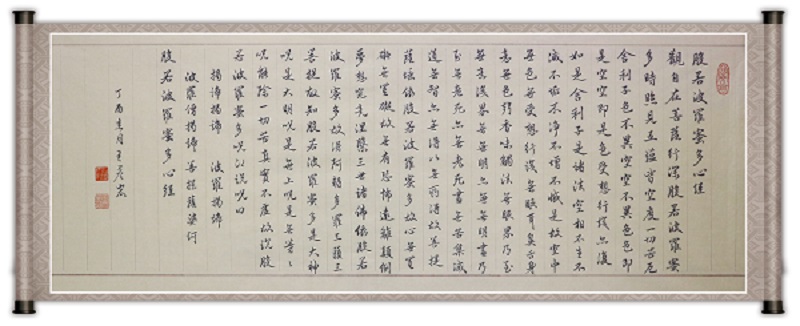 般若波羅蜜多心经
觀自在菩薩行深般若波羅蜜
多時照見五蕴皆空度一切苦厄
舍利子色不異空空不異色色即
是空空即是色受想行识亦復
如是舍利子是诸法空相不生不
滅不垢不净不增不減是故空中
無色無受想行识無眼耳鼻舌身
意無色聲香味觸法無眼界乃至
無意识界無無明亦無無明盡乃
至無老死亦無老死盡無苦集滅
道無智亦無得以無所得故菩提
薩埵依般若波羅蜜多故心無罣
礙無罣礙故無有恐怖遠離顛倒
夢想究竟涅槃三世诸佛依般若
波羅蜜多故得阿耨多羅三藐三
菩提故知般若波羅蜜多是大神
咒是大明咒是無上咒是無等々
咒能除一切苦真實不虚故说般
若波羅蜜多咒即说咒曰
揭諦揭諦 波羅揭諦
波羅僧揭諦 菩提薩婆訶
般若波羅蜜多心经
丁酉 月王